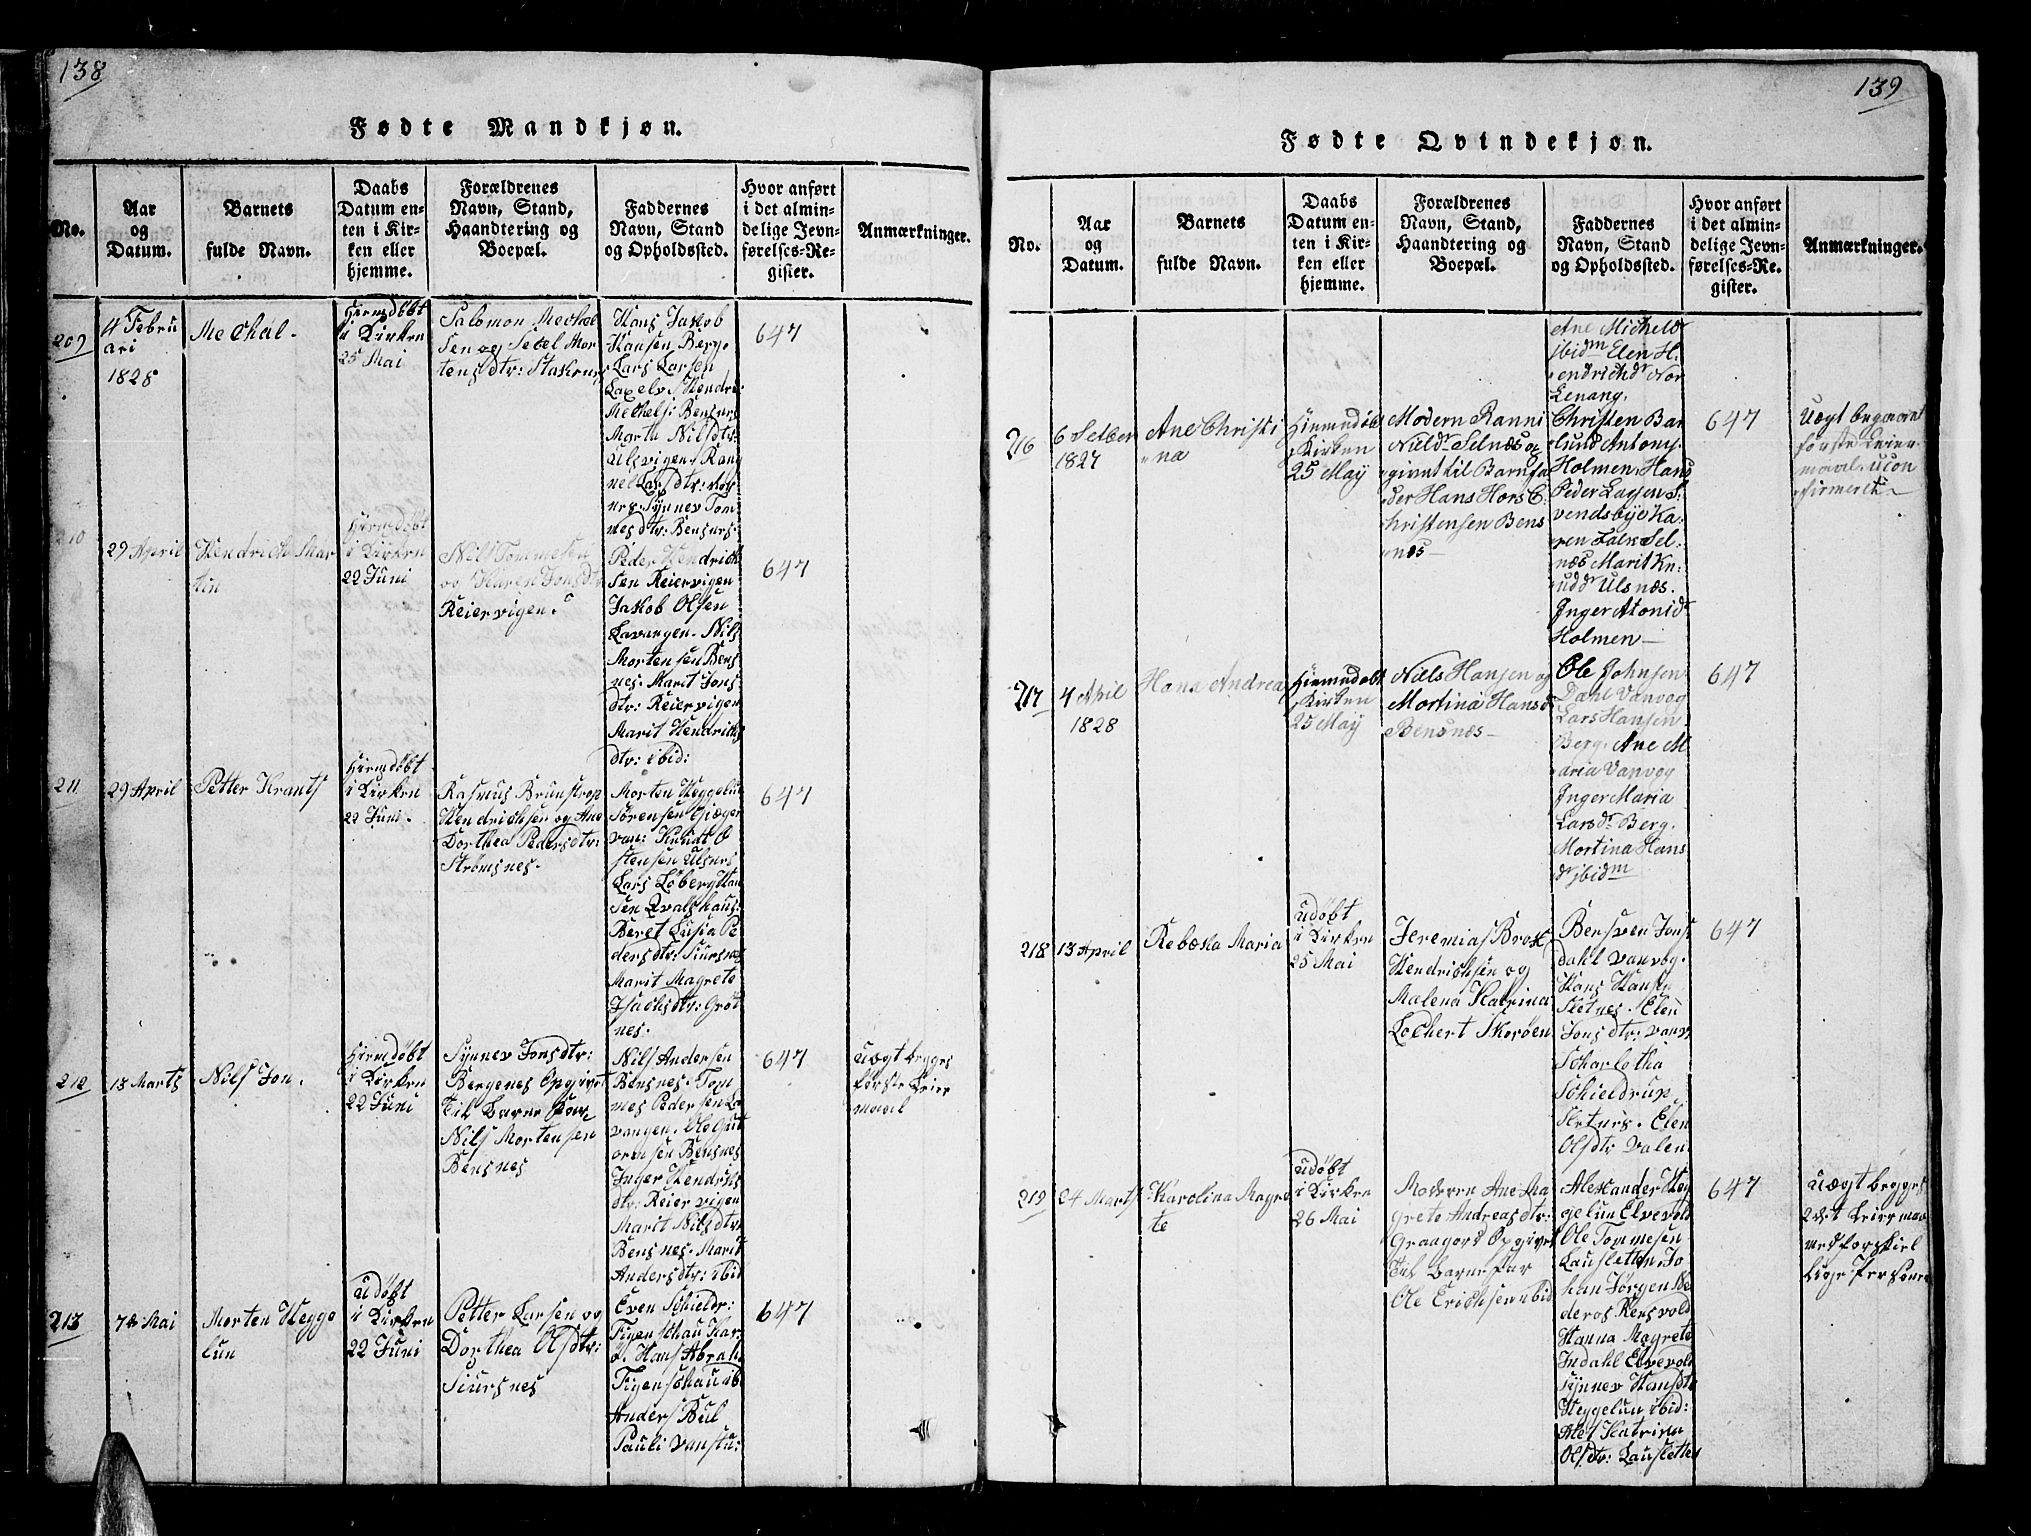 138
Fødte Mandkjøn.
No.
Aar
og
Datum.
Barnets
fulde Navn.
Daabs
Datum en-
ten i Kir-
ken eller
hjemme.
Forældrenes
Navn, Stand,
Haandtering og
Boepæl.
Faddernes
Navn, Stand
og Opholdssted.
Hvor anført
i det almin-
delige Jevn-
førelses-Re-
gister.
Anmærkninger.
209
4 Febru
ari
1828
Mechal-
Hiemdøbt
i Kirken
25 Mai
Salomon Mechel
sen og Sebel Mor
tensdtr:
Hans Jakob
Hansen Berge
Lars Larsen
Laxelv. Hendr
Mechels: Bensnes
Marth Nilsdtr:
Ulsvigen. Ran
nel Larsdtr:
Synnev Tom
mesdtr: Bensnes:
647
210
29 April
Hendrich Mar
tin
Hiemdøbt
i Kirken
22 Juni
Nils Tommesen
og Karen Jonsdtr
Reiervigen.
Peder Hendrich
sen Reiervigen
Jakob Olsen
Lavangen. Nils
Mortensen Bens
nes. Marit Jons
dtr: Reiervigen
Marit Hendrichs
dtr: ibid:
647
211
29 April
Petter Krants
Hiemdøbt
i Kirken
22 Juni.
Rasmus Brunstrop
Hendrichsen og Ane
Dorthea Pedersdtr:
Strømsnes.
Morten Heggelun
Sørensen Giæger
van: Knudt O
stensen Ulsnes
Lars Løberg Han
sen Qvalshaus:
Beret Lusia Pe
dersdtr: Siursnes
Marit Magrete
Isachsdtr: Grøt
nes.
647
212
13 Marts
Nils Jon.
Hiemdøbt
i Kirken
22 Juni
Synnev Jonsdtr:
Bergenes Opgivet
til Barne Far
Nils Mortensen
Bensnes
Nils Andersen
Bensnes. Tom
mes Pedersen La
vangen. Ole Gut
ormsen Bensnes
Inger Hendrichs
dtr: Reiervigen
Marit Nilsdtr:
Bensnes. Marit
Andersdtr: ibid
647
Uægt begges
første Leier
maal
213
7de Mai
Morten Hegge
lun
Udøbt
i Kirken
22 Juni
Petter Larsen og
Dorthea Olsdtr:
Siursnes
Even Schieldr:
Figenschau
Hans Abrah.
Figenschau ib
Anders Bul
Pauli
647
139
Fødte Qvindekjøn.
No.
Aar
og
Datum.
Barnets
fulde Navn.
Daabs
Datum en-
ten i Kir-
ken eller
hjemme.
Forældrenes
Navn, Stand,
Haandtering og
Boepæl.
Faddernes
Navn, Stand
og Opholdssted.
Hvor anført
i det almin-
delige Jevn-
førelses-Re-
gister.
Anmærkninger.
Ane Michelsdr
jbidm Elen H.
endrichdr Nor
Lenang.
216
6 Setber
1827
Ane Christi
na
Hiemmdøbt
i Kirken
25 May
Modern Ranni
Nilsdr Selnæs og
givent til Barnfa
der Hans Hors C.
hristensen Bens
næs
Christen Bar
lund Antony.
Holmen. Hans
Peder Larsen S.
vendsbye Ka
ren Falk Sel
næs Marit Kn
udd Ulsnæs.
Inger Atonidr
Holmen
647
Uægt begg
første Leier
maal. ucon
firmert
217
4 April
1828
Hana Andrea
Hiemmdøbt
i Kirken
25 May
Niels Hansen og
Mortina Hansd
Bensnæs
Ole Johnsen
Dahl Vanvog
Lars Hansen
Berg. Ane M
aria Vanvog
Inger Maria
Larsdr Berg.
Mortina Hans
dr jbidm
647
218
13 April
Rebæka Maria
Udøbt
i Kirken
25 Mai
Jeremias Brox
Hendrichsen og
Malena Katrina
Lochert Skorøen
Bensven Jons
dahl Vanvog.
Hans Hansen
Sletnes. Elen
Jonsdtr: Vanv
Scharlotha
Schieldrup
Sletnes. Elen
Olsdtr Valen
647
219
24 Marts
Karolina Magre
te
Udøbt
i Kirken
26 Mai
Moderen Ane Ma
grete Andreasdtr:
Graagord Opgivet
til Barnefar
Ole Erichsen ibid
Alexander Heg
gelun Elvevold
Ole Tommesen
Lausletten Jo
han Jørgen
Rensvold
Hanna Magrete
Indahl Elvevold
Synnev Hansdtr
Heggelun ibid:
Alet Katrina
Olsdtr: Lausletten
647
Uægt begges
2det Leierma
med forskiel
lige Persone